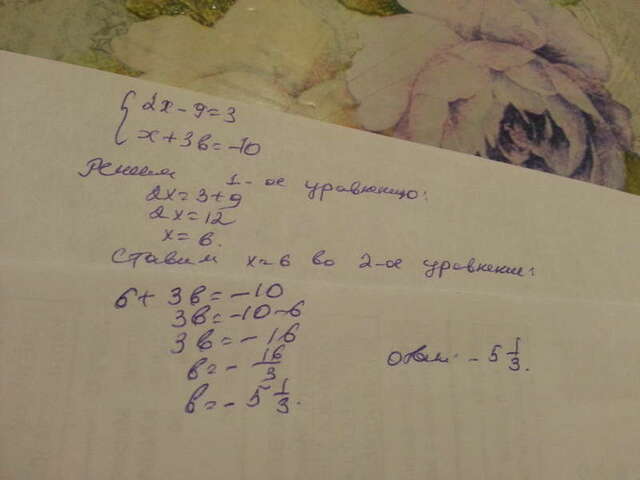 { 2x - 9 = 3
x + 3в = -10
Решим 1-ое уравнению:
2x = 3 + 9
2x = 12
x = 6.
Ставим x = 6 во 2-ое уравнение:
6 + 3в = -10
3в = -10 - 6
3в = - 16
в = - 16/3
в = - 5 1/3.
Ответ: - 5 1/3.